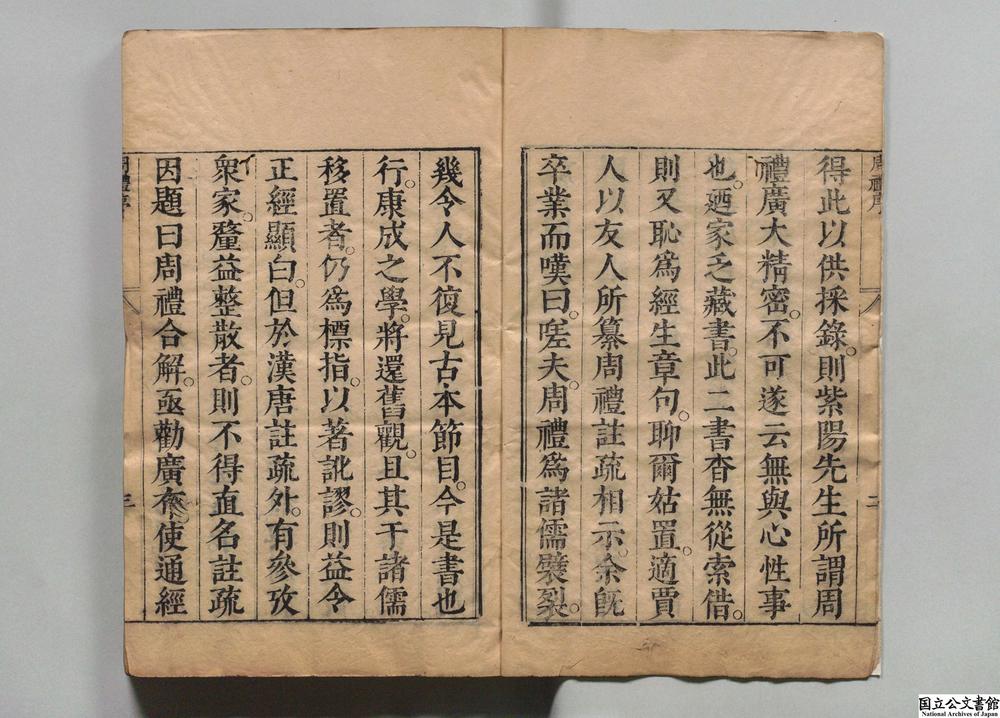 周禮序
二
得此以供採錄。則紫陽先生所謂周
禮廣大精密。不可遂云無與心性事
也。廼家乏藏書。此二書杳無從索借。
則又恥爲經生章句。聊爾姑置。適賈
人以友人所纂周禮註疏相示。余旣
卒業而嘆曰。嗟夫。周禮爲諸儒襞裂。
幾令人不復見古本節目。今是書也
行。康成之學。將還舊觀。且其于諸儒
移置者。仍爲標指。以著訛謬。則益令
正經顯白。但於漢唐註疏外。有參攷
衆家。釐益整散者。則不得直名註疏
因題曰周禮合解。亟勸廣布使通經
周禮序
三
国立公文書館
National Archives of Japan